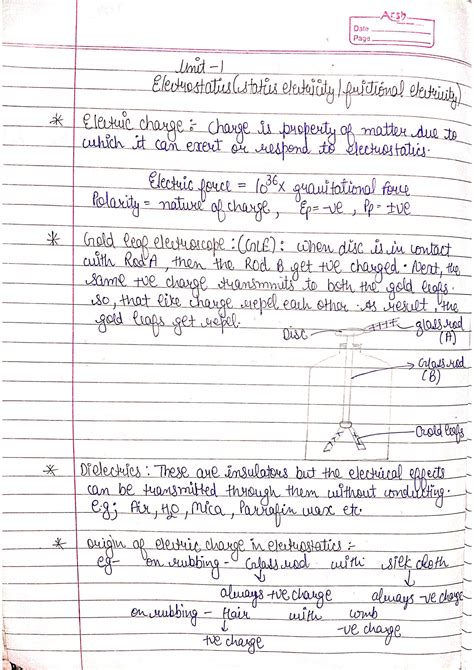 Arsh
Date
Page
Unit-1
Electrostatics (statics electricity / frictional electricity)
* Electric charge :- Charge is property of matter due to
which it can exert or respond to electrostatics.
Electric force = 10³⁶ x gravitational force
Polarity = nature of charge, Ep= -ve, Pp = ±ve
* Gold leaf electroscope : (GLE) : When disc is in contact
with Rod A, then the Rod B get +ve charged. Next, the
same +ve charge transmmits to both the gold leafs.
so, that like charge repel each other. As result, the
gold leafs get repel.
Disc
glass rod
(A)
Glass rod
(B)
Gold leafs
* Dielectrics : These are insulators but the electrical effects
can be transmitted through them without conducting.
E.g; Air, H₂O, Mica, Parrafin wax etc.
* origin of electric charge in electrostatics :-
eg- on rubbing - Glass rod with silk cloth
always +ve charge always -ve charge
on rubbing - Hair with comb
+ve charge -ve charge